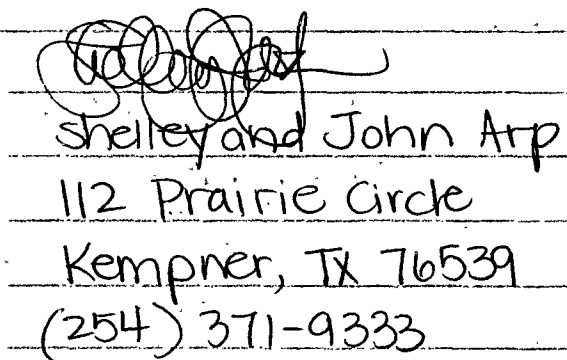 Shelley and John Arp
112 Prairie Circle
Kempner, TX 76539
(254) 371-9333